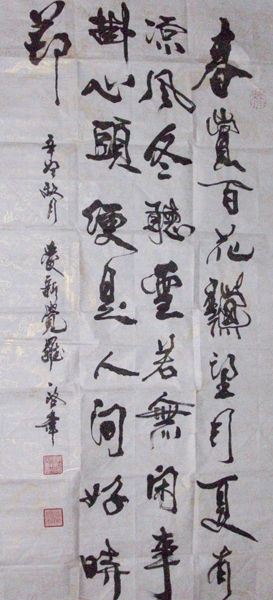 春賞百花龝望月夏有
凉風冬聽雪若無閑事
掛心頭便是人间好時
節
辛卯 月 愛新覺羅